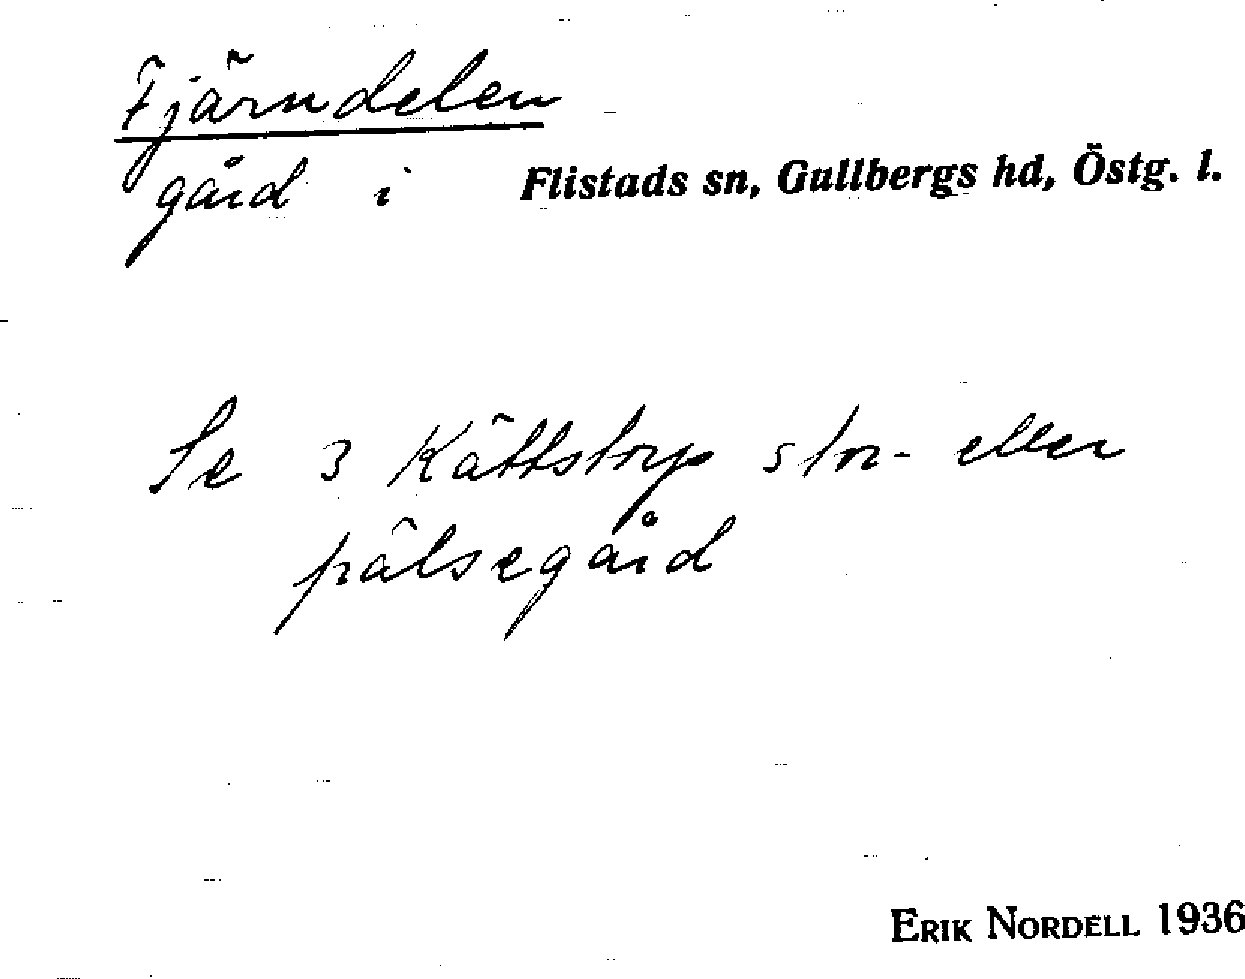 Fjärndelen
gård i Flistads sn, Gullbergs hd, Östg. l.
Se 3 Kättstorp stor- eller
pälsegård
ERIK NORDELL 1936